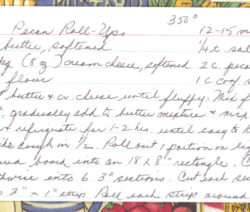 Pecan Roll-Ups 350° 12-15 m
butter, softened ¼ t. sal
kg (8 oz) cream cheese, softened 2 c. peca
flour 1 c conf s
t butter & cr. cheese until fluffy. Mix f
, gradually add to butter mixture & mix
& refrigerate for 1-2 hrs. until easy to h
de dough in ½. Roll out 1 portion on lig
board into an 18 x 8" rectangle. C
dwise into 6 3" sections. Cut each sec
3" x 1" strip Roll each strip around